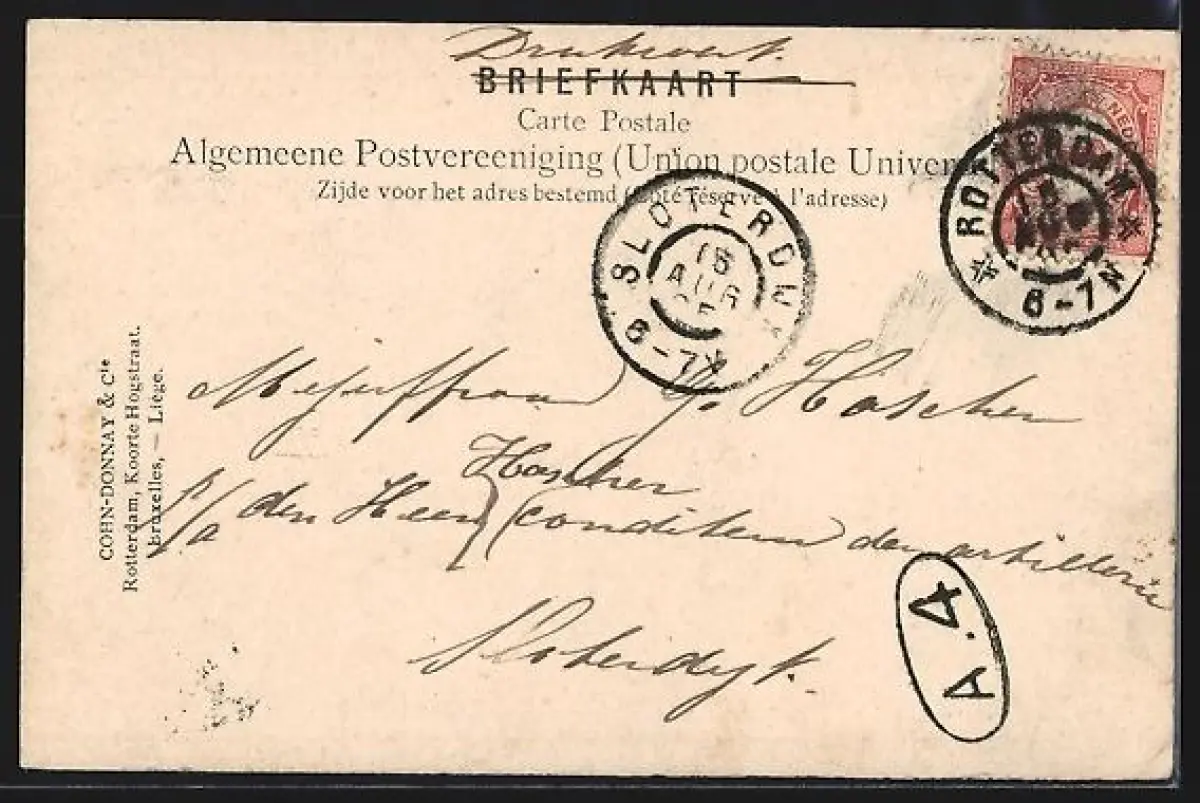 Drukwerk.
BRIEFKAART
Carte Postale
Algemeene Postvereeniging (Union postale Univer
Zijde voor het adres bestemd (Côté réservé à l'adresse)
NED
ROTTERDAM
6-7N
SLOTERDIJK
15
AUG
6-7
COHN-DONNAY & Cie
Rotterdam, Koorte Hogstraat.
bruxelles, — Liège.
Mejuffrouw
Hascher
p/a den Heer
den artillerie
Sloterdijk.
A.4